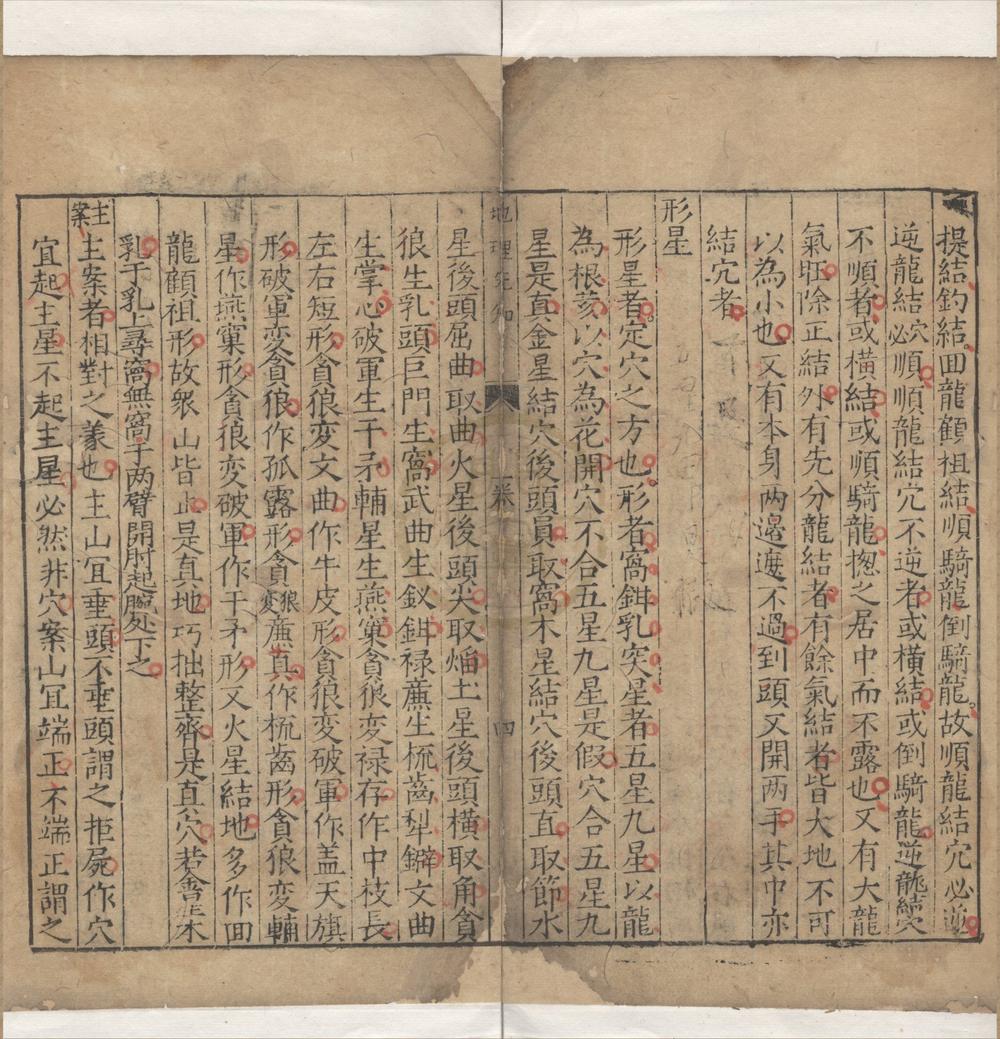 提結釣結回龍顧祖結順騎龍倒騎龍故順龍結穴必逆
逆龍結穴必順順龍結穴不逆者或橫結或倒騎龍逆龍結穴
不順者或橫結或順騎龍揔之居中而不露也又有大龍
氣旺除正結外有先分龍結者有餘氣結者皆大地不可
以為小也又有本身两邊遮不過到頭又開两手其中亦
結穴者
形星
形星者定穴之方也形者窩鉗乳突星者五星九星以龍
為根荄以穴為花開穴不合五星九星是假穴合五星九
星是真金星結穴後頭員取窩木星結穴後頭直取節水
地理 知
卷
四
星後頭屈曲取曲火星後頭尖取熖土星後頭橫取角貪
狼生乳頭巨門生窩武曲生釵鉗禄廉生梳齒犁鐴文曲
生掌心破軍生干矛輔星生燕窠貪狼变禄存作中枝長
左右短形貪狼变文曲作牛皮形貪狼变破軍作盖天旗
形破軍变貪狼作孤露形貪狼变廉真作梳齒形貪狼变輔
星作燕窠形貪狼变破軍作干矛形又火星結地多作回
龍顧祖形故衆山皆止是真地巧拙整齊是真穴若會葉
乳于乳上尋窩無窩于两臂開肘起腕处下之
主案
主案者相對之義也主山宜垂頭不垂頭謂之拒屍作穴
宜起主星不起主星必然非穴案山宜端正不端正謂之